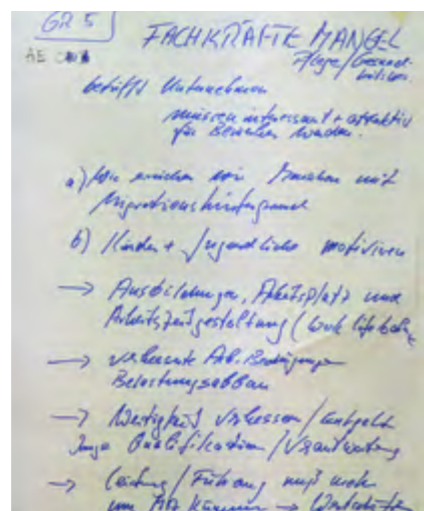 GR 5
FACHKRÄFTE MANGEL
AE
Pflege/Gesund-
betrifft Unternehmen
müssen interessant + attraktiv
für Bewerber werden.
a) Wie erreichen wir Menschen mit
Migrationshintergrund
b) Kinder + Jugendliche motivieren
→ Ausbildungen, Arbeitsplatz und
Arbeitszeitgestaltung (work life
→ verbesserte Arb. Bedingungen
Belastungsabbau
→ Wertigkeit verbessern / Entgelt
Qualifikation / Verantwortung
→ Leitung / Führung muß mehr
um MA kümmern →